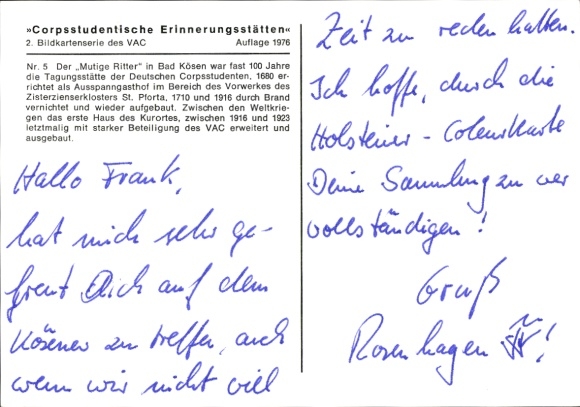 »Corpsstudentische Erinnerungsstätten«
2. Bildkartenserie des VAC Auflage 1976
Nr. 5 Der „Mutige Ritter" in Bad Kösen war fast 100 Jahre
die Tagungsstätte der Deutschen Corpsstudenten, 1680 er-
richtet als Ausspanngasthof im Bereich des Vorwerkes des
Zisterzienserklosters St. Pforta, 1710 und 1916 durch Brand
vernichtet und wieder aufgebaut. Zwischen den Weltkrie-
gen das erste Haus des Kurortes, zwischen 1916 und 1923
letztmalig mit starker Beteiligung des VAC erweitert und
ausgebaut.
Hallo Frank,
hat mich sehr ge-
freut Dich auf dem
Kösener zu treffen, auch
wenn wir nicht viel
Zeit zu reden hatten.
Ich hoffe, durch die
Holsteiner-Couleurkarte
Deine Sammlung zu ver
vollständigen!
Gruß
Rosenhagen